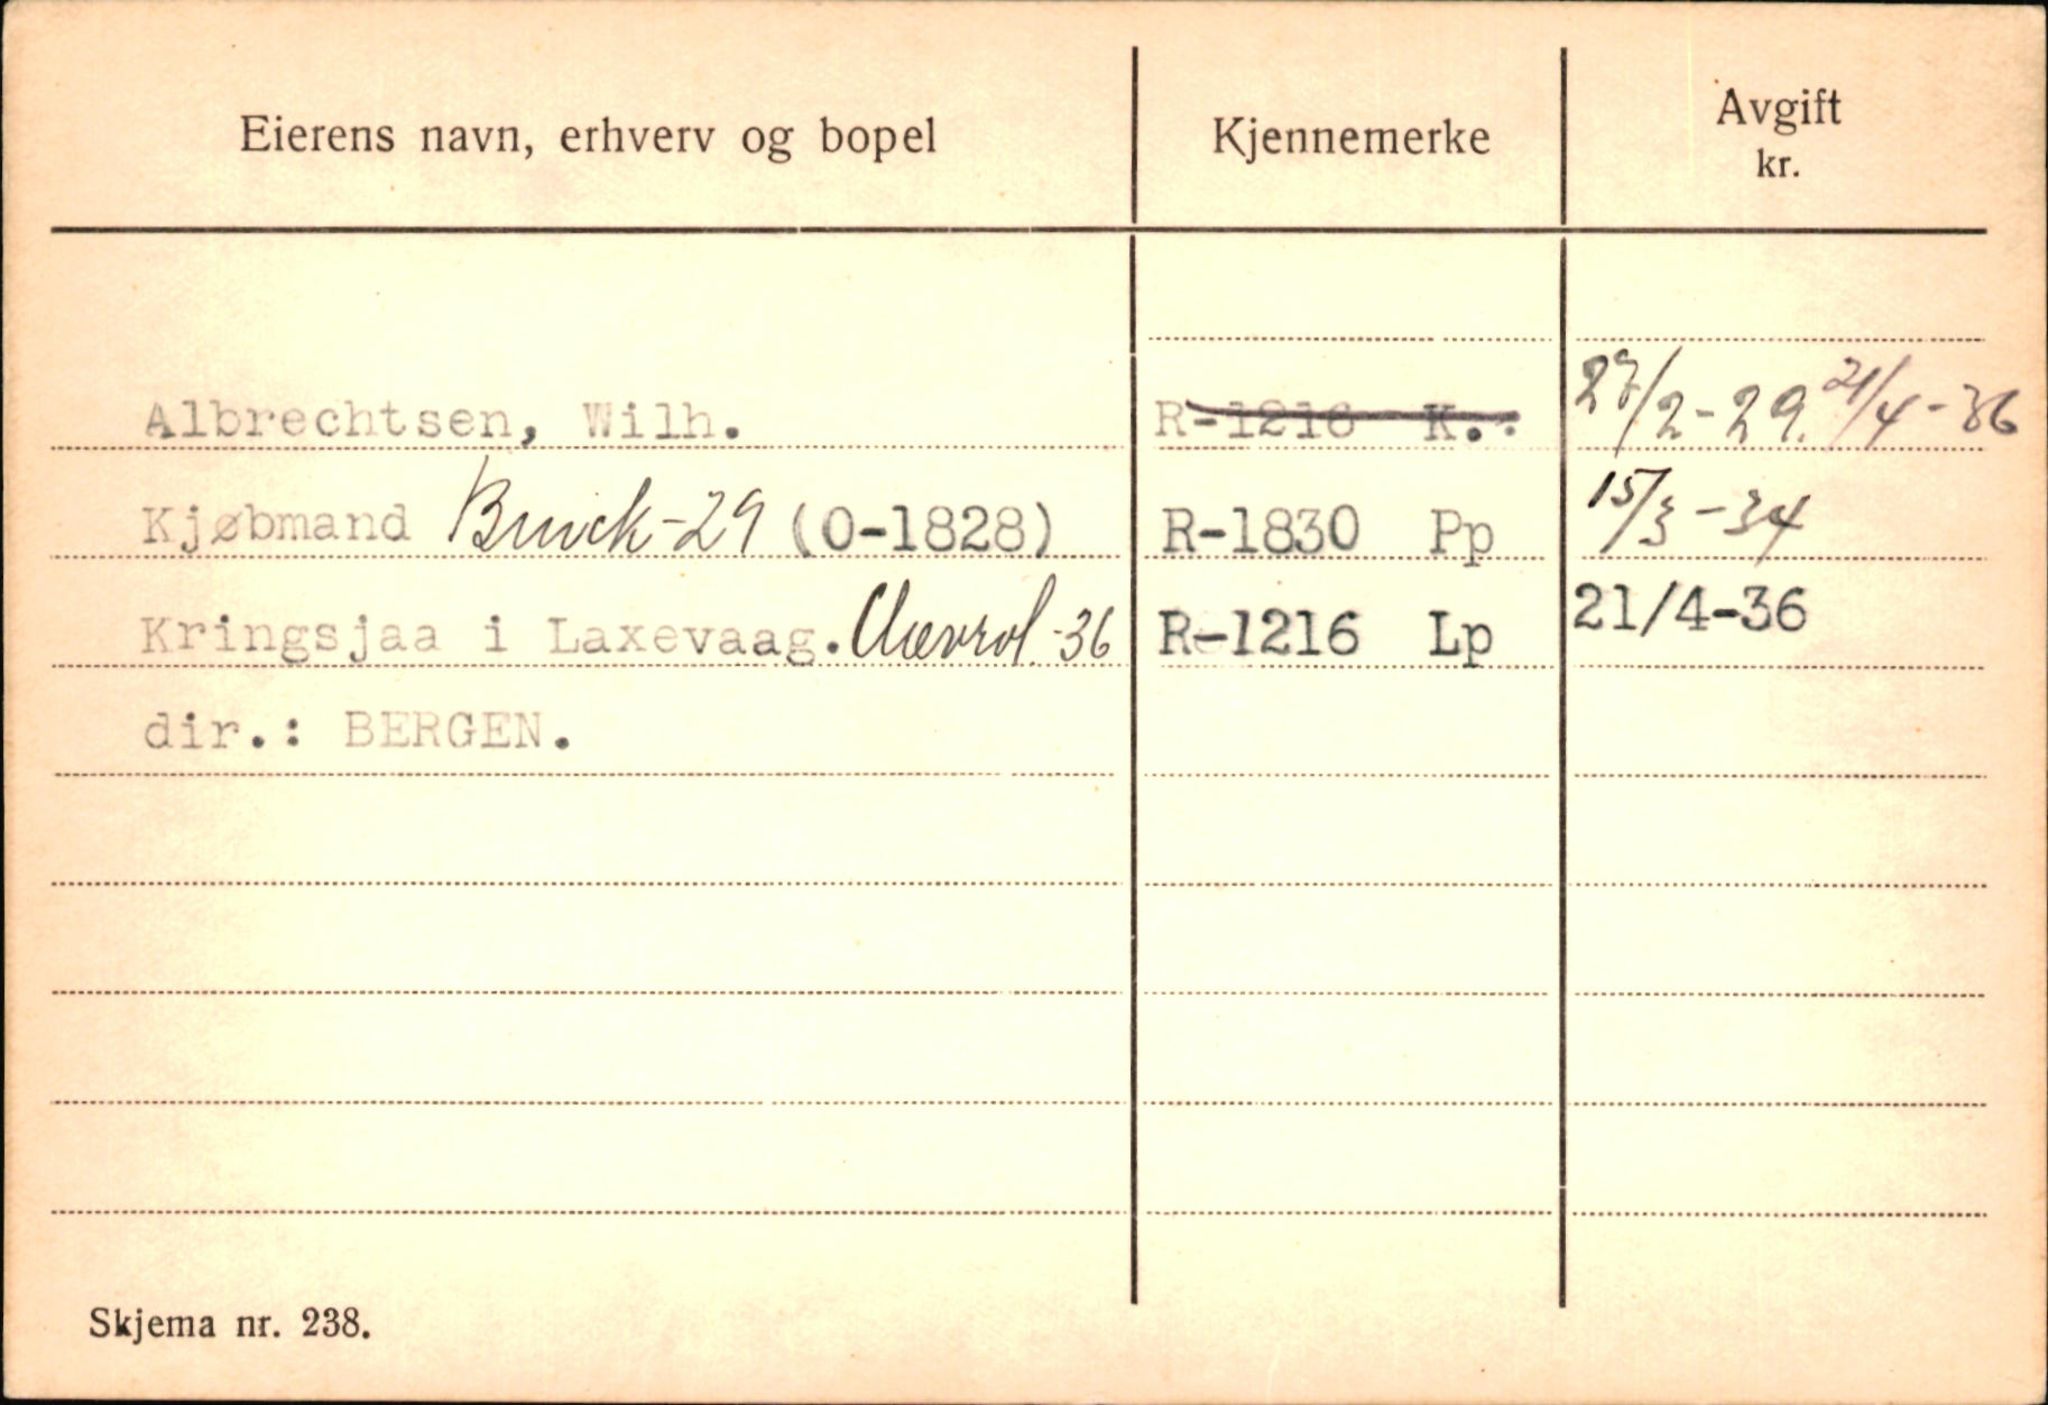 Eierens navn, erhverv og bopel Kjennemerke Avgift
kr.
Albrechtsen, Wilh. R-1216 K. 27/2-29. 21/4-36
Kjøbmand Buick-29 (O-1828) R-1830 Pp 15/3-34
Kringsjaa i Laxevaag. Chevrol.-36 R-1216 Lp 21/4-36
dir.: BERGEN.
Skjema nr. 238.